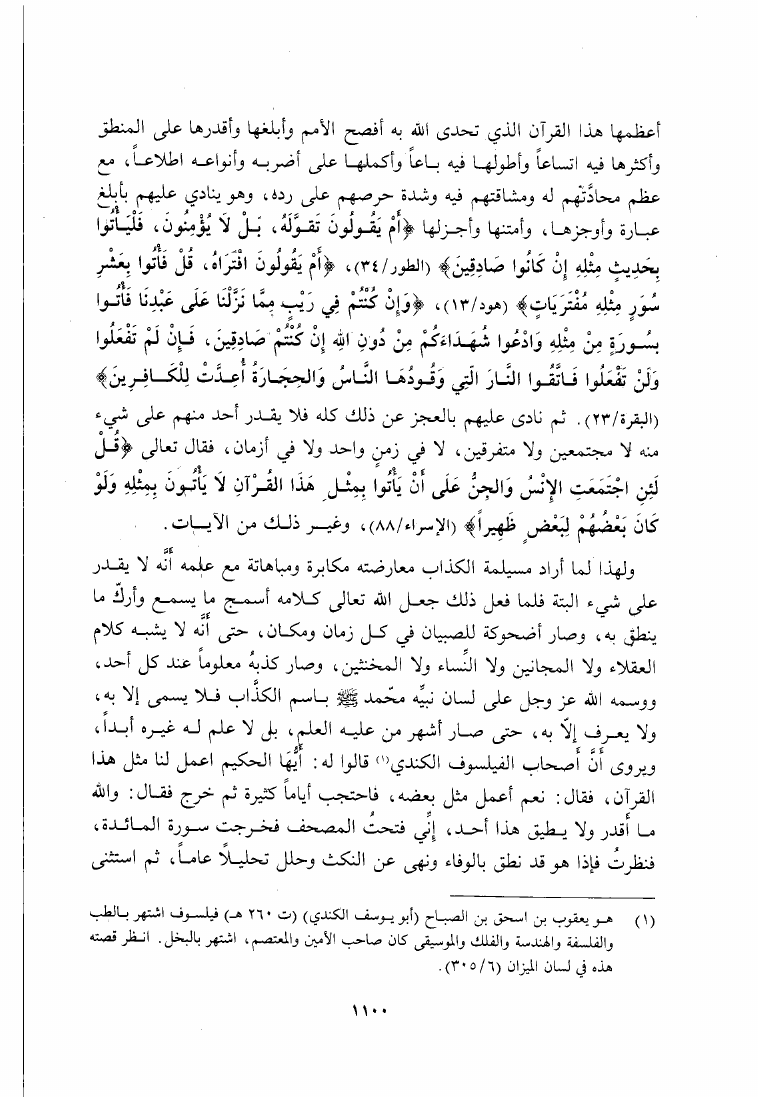 أعظمها هذا القرآن الذي تحدى الله به أفصح الأمم وأبلغها وأقدرها على المنطق
وأكثرها فيه اتساعاً وأطولها فيه باعاً وأكملها على أضربه وأنواعه اطلاعاً، مع
عظم محادَّتهم له ومشاقتهم فيه وشدة حرصهم على رده، وهو ينادي عليهم بأبلغ
عبارة وأوجزها، وأمتنها وأجزلها ﴿أَمْ يَقُولُونَ تَقَوَّلَهُ، بَلْ لَا يُؤْمِنُونَ، فَلْيَأْتُوا
بِحَدِيثٍ مِثْلِهِ إِنْ كَانُوا صَادِقِينَ﴾ (الطور/٣٤)، ﴿أَمْ يَقُولُونَ افْتَرَاهُ، قُلْ فَأْتُوا بِعَشْرِ
سُوَرٍ مِثْلِهِ مُفْتَرَيَاتٍ﴾ (هود/١٣)، ﴿وَإِنْ كُنْتُمْ فِي رَيْبٍ مِمَّا نَزَّلْنَا عَلَى عَبْدِنَا فَأْتُوا
بِسُورَةٍ مِنْ مِثْلِهِ وَادْعُوا شُهَدَاءَكُمْ مِنْ دُونِ الله إِنْ كُنْتُمْ صَادِقِينَ، فَإِنْ لَمْ تَفْعَلُوا
وَلَنْ تَفْعَلُوا فَاتَّقُوا النَّارَ الَّتِي وَقُودُهَا النَّاسُ وَالحِجَارَةُ أُعِدَّتْ لِلْكَافِرِينَ﴾
(البقرة/٢٣). ثم نادى عليهم بالعجز عن ذلك كله فلا يقدر أحد منهم على شيء
منه لا مجتمعين ولا متفرقين، لا في زمنٍ واحد ولا في أزمان، فقال تعالى ﴿قُلْ
لَئِنِ اجْتَمَعَتِ الإِنْسُ وَالجِنُّ عَلَى أَنْ يَأْتُوا بِمِثْلِ هَذَا القُرْآنِ لَا يَأْتُونَ بِمِثْلِهِ وَلَوْ
كَانَ بَعْضُهُمْ لِبَعْضٍ ظَهِيراً﴾ (الإسراء/٨٨)، وغير ذلك من الآيات.
ولهذا لما أراد مسيلمة الكذاب معارضته مكابرة ومباهاتة مع علمه أنَّه لا يقدر
على شيء البتة فلما فعل ذلك جعل الله تعالى كلامه أسمج ما يسمع وأركّ ما
ينطق به، وصار أضحوكة للصبيان في كل زمان ومكان، حتى أنَّه لا يشبه كلام
العقلاء ولا المجانين ولا النِّساء ولا المخنثين، وصار كذبهُ معلوماً عند كل أحد،
ووسمه الله عز وجل على لسان نبيِّه محمّد ﷺ باسم الكذَّاب فلا يسمى إلا به،
ولا يعرف إلاّ به، حتى صار أشهر من عليه العلم، بل لا علم له غيره أبداً،
ويروى أنَّ أصحاب الفيلسوف الكندي(١) قالوا له: أيُّها الحكيم اعمل لنا مثل هذا
القرآن، فقال: نعم أعمل مثل بعضه، فاحتجب أياماً كثيرة ثم خرج فقال: والله
ما أقدر ولا يطيق هذا أحد، إنِّي فتحتُ المصحف فخرجت سورة المائدة،
فنظرتُ فإذا هو قد نطق بالوفاء ونهى عن النكث وحلل تحليلاً عاماً، ثم استثنى
(١) هو يعقوب بن اسحق بن الصباح (أبو يوسف الكندي) (ت ٢٦٠ هـ) فيلسوف اشتهر بالطب
والفلسفة والهندسة والفلك والموسيقى كان صاحب الأمين والمعتصم، اشتهر بالبخل. انظر قصته
هذه في لسان الميزان (٣٠٥/٦).
١١٠٠